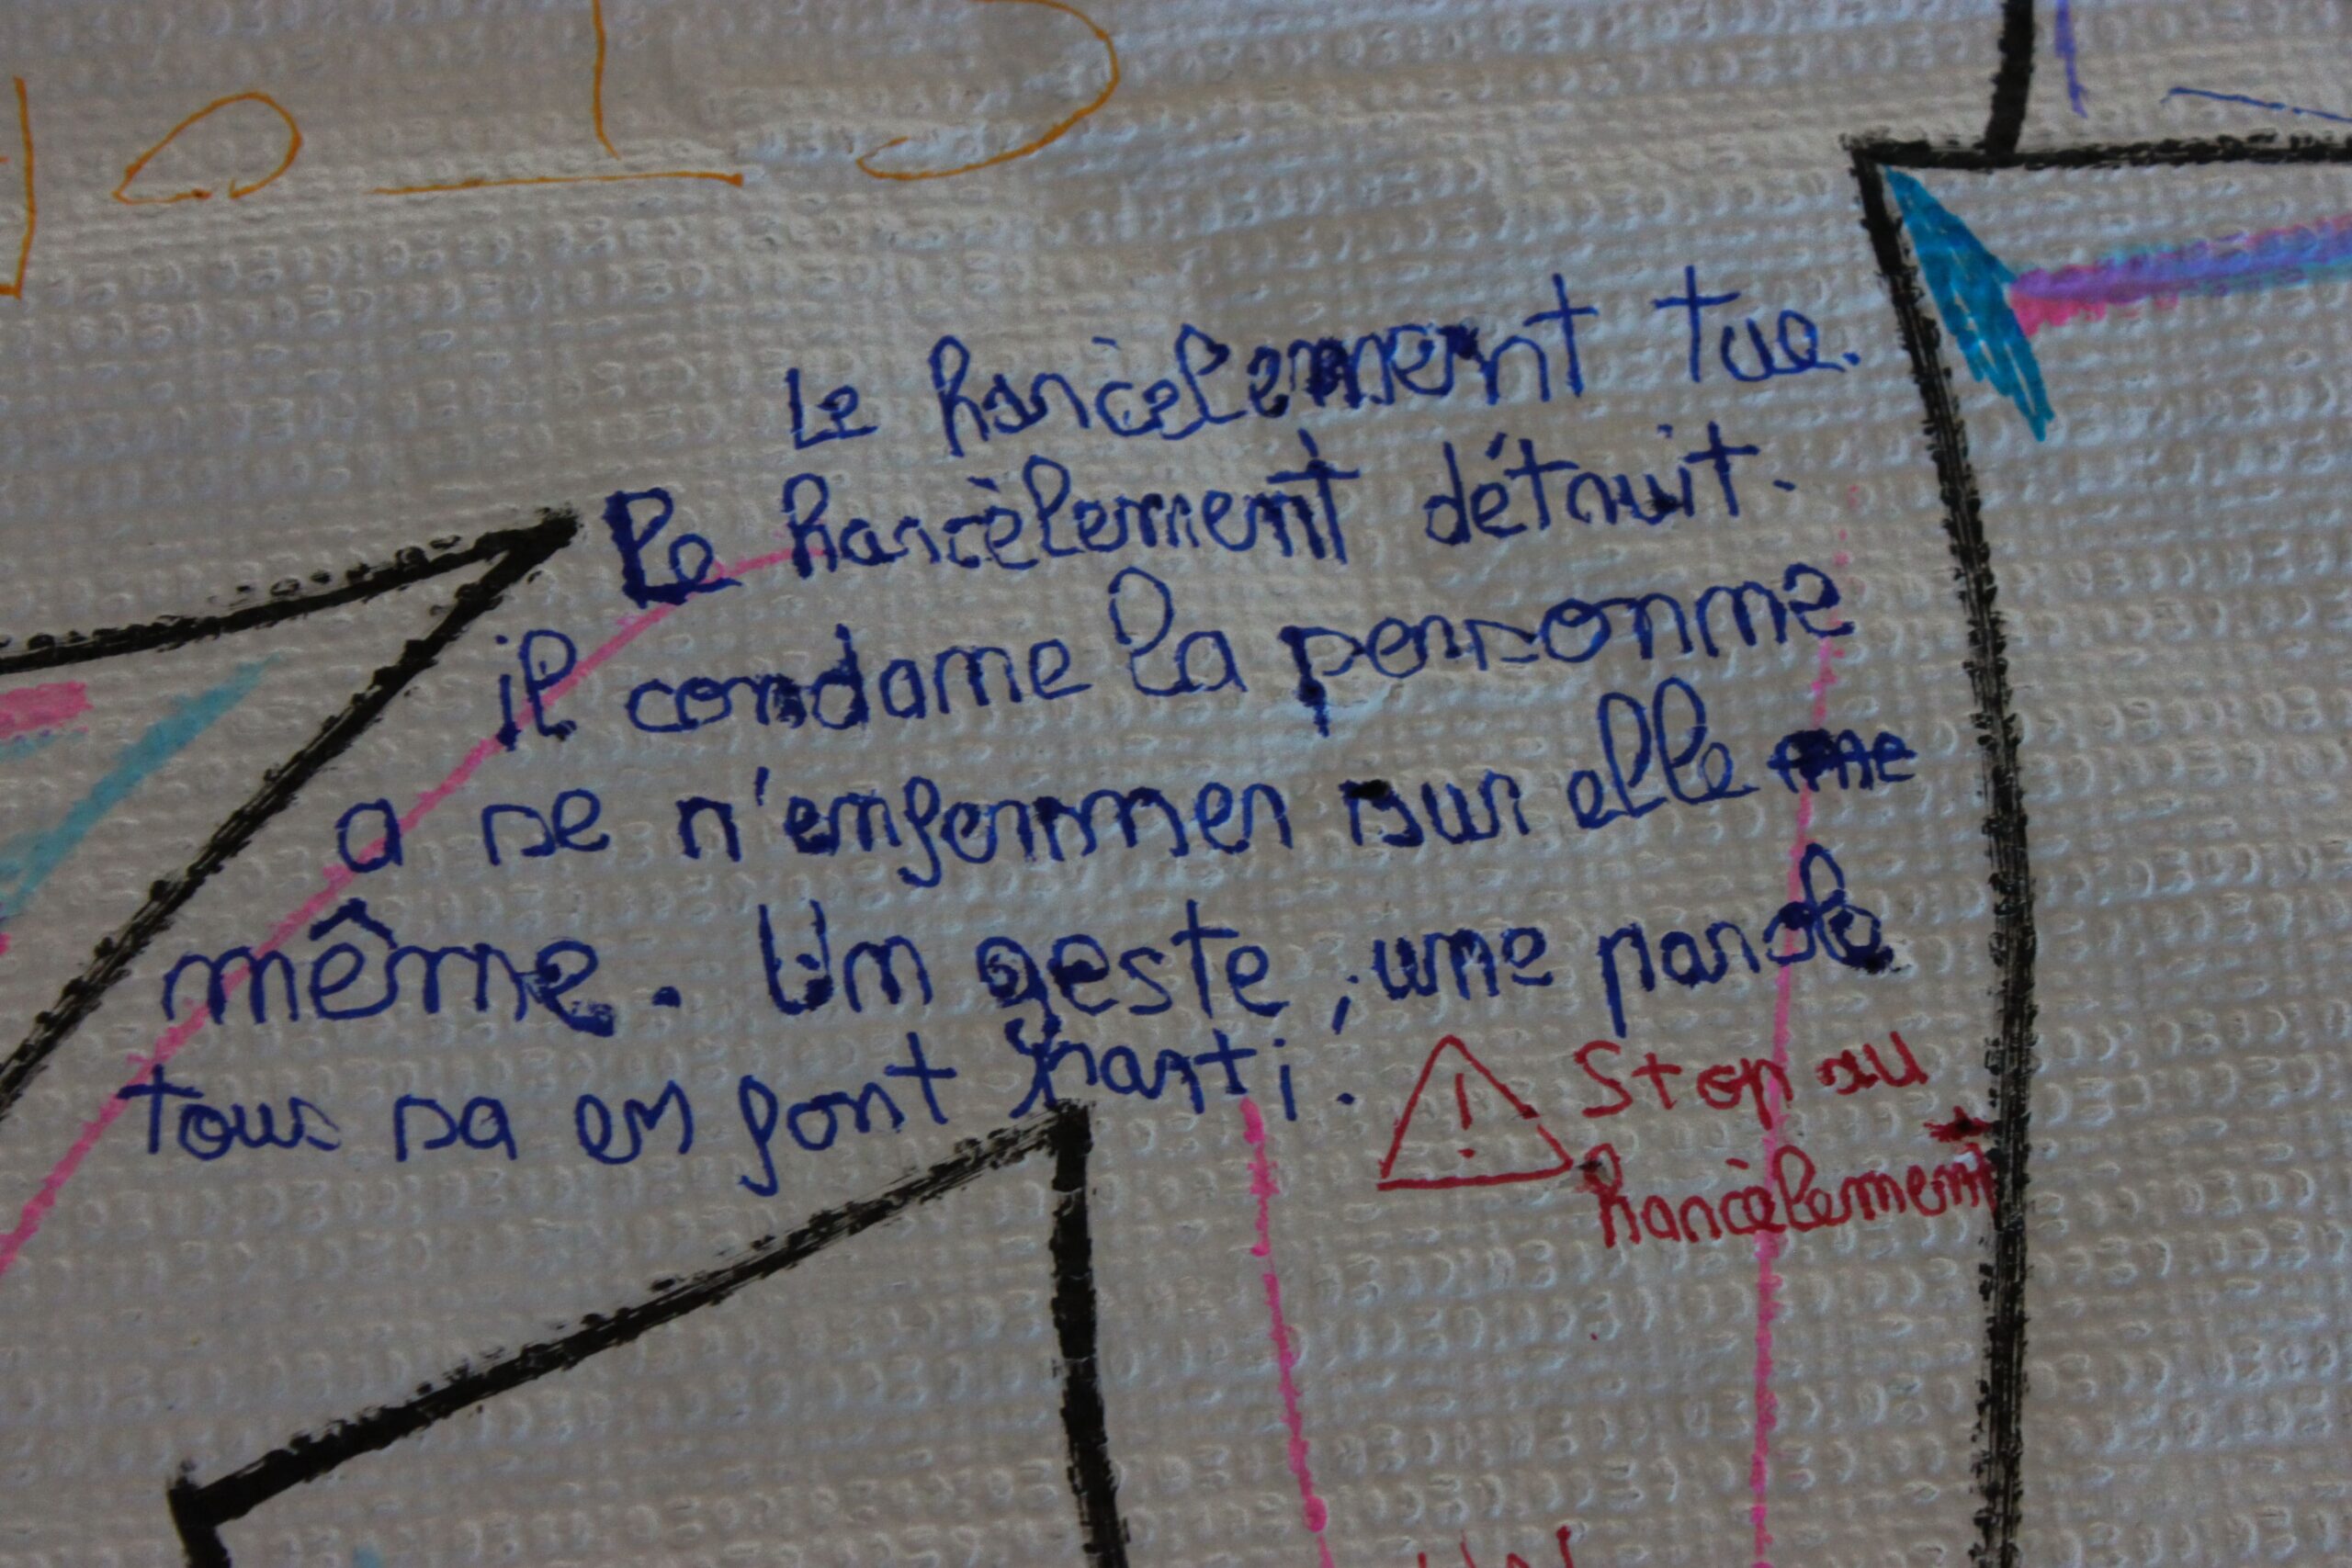 Le harcèlement tue.
Le harcèlement détruit.
il condame la personne
a se n'enfermer sur elle
même. Un geste, une parole
tous sa en font parti.
Stop au
harcèlement